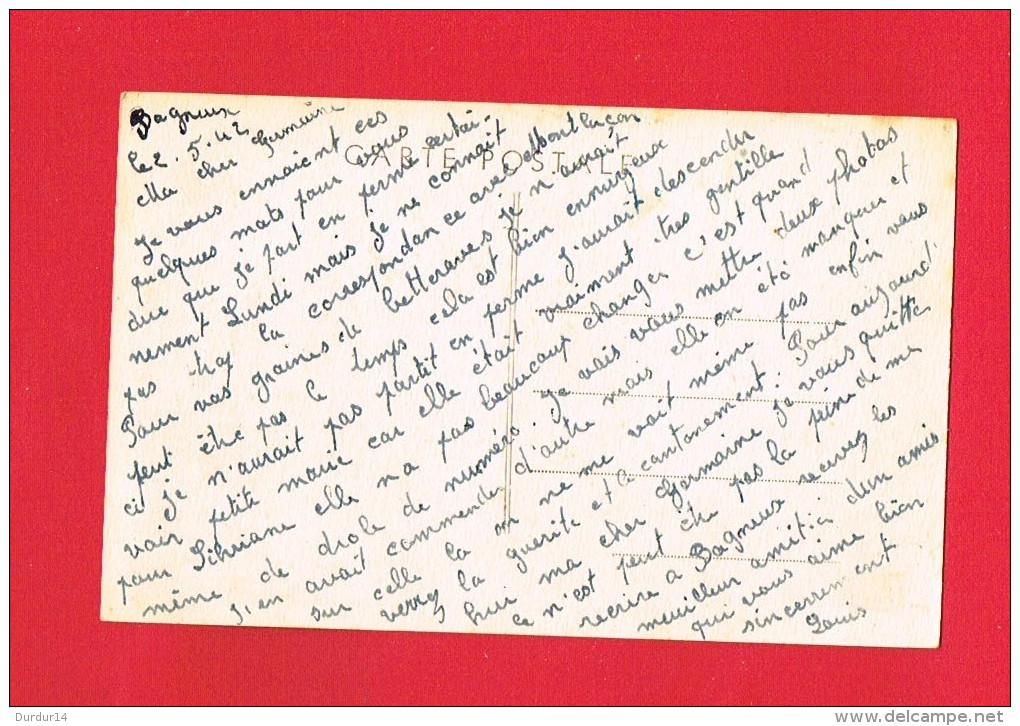 Bagneux
le 2.5.42
Ma cher Germaine
Je vous envoient ces
quelques mots pour vous
dire que je part en ferme certai-
nement Lundi mais je ne connait
pas trop la correspondance avec Montluçon
Pour vos graines de betteraves je n'aurait
peut être pas le temps cela est bien ennuyeux
ci je n'aurait pas partit en ferme j'aurait descendu
voir petite marie car elle était vraiment tres gentille
pour Silviane elle n'a pas beaucoup changer c'est quand
même de drole de numéro. Je vais vous mettre deux photos
j'en avait commander d'autre mais elle on été manquer et
sur celle la on ne me voit même pas enfin vous
verrez la guerite et le cantonement. Pour aujourd'
hui ma cher Germaine je vous quitte
ce n'est peut être pas la peine de me
recrire a Bagneux recevez les
meuilleur amitiés d'un amis
qui vous aime bien
sincerrement
Louis
CARTE POSTALE
Durdur14
www.delcampe.net